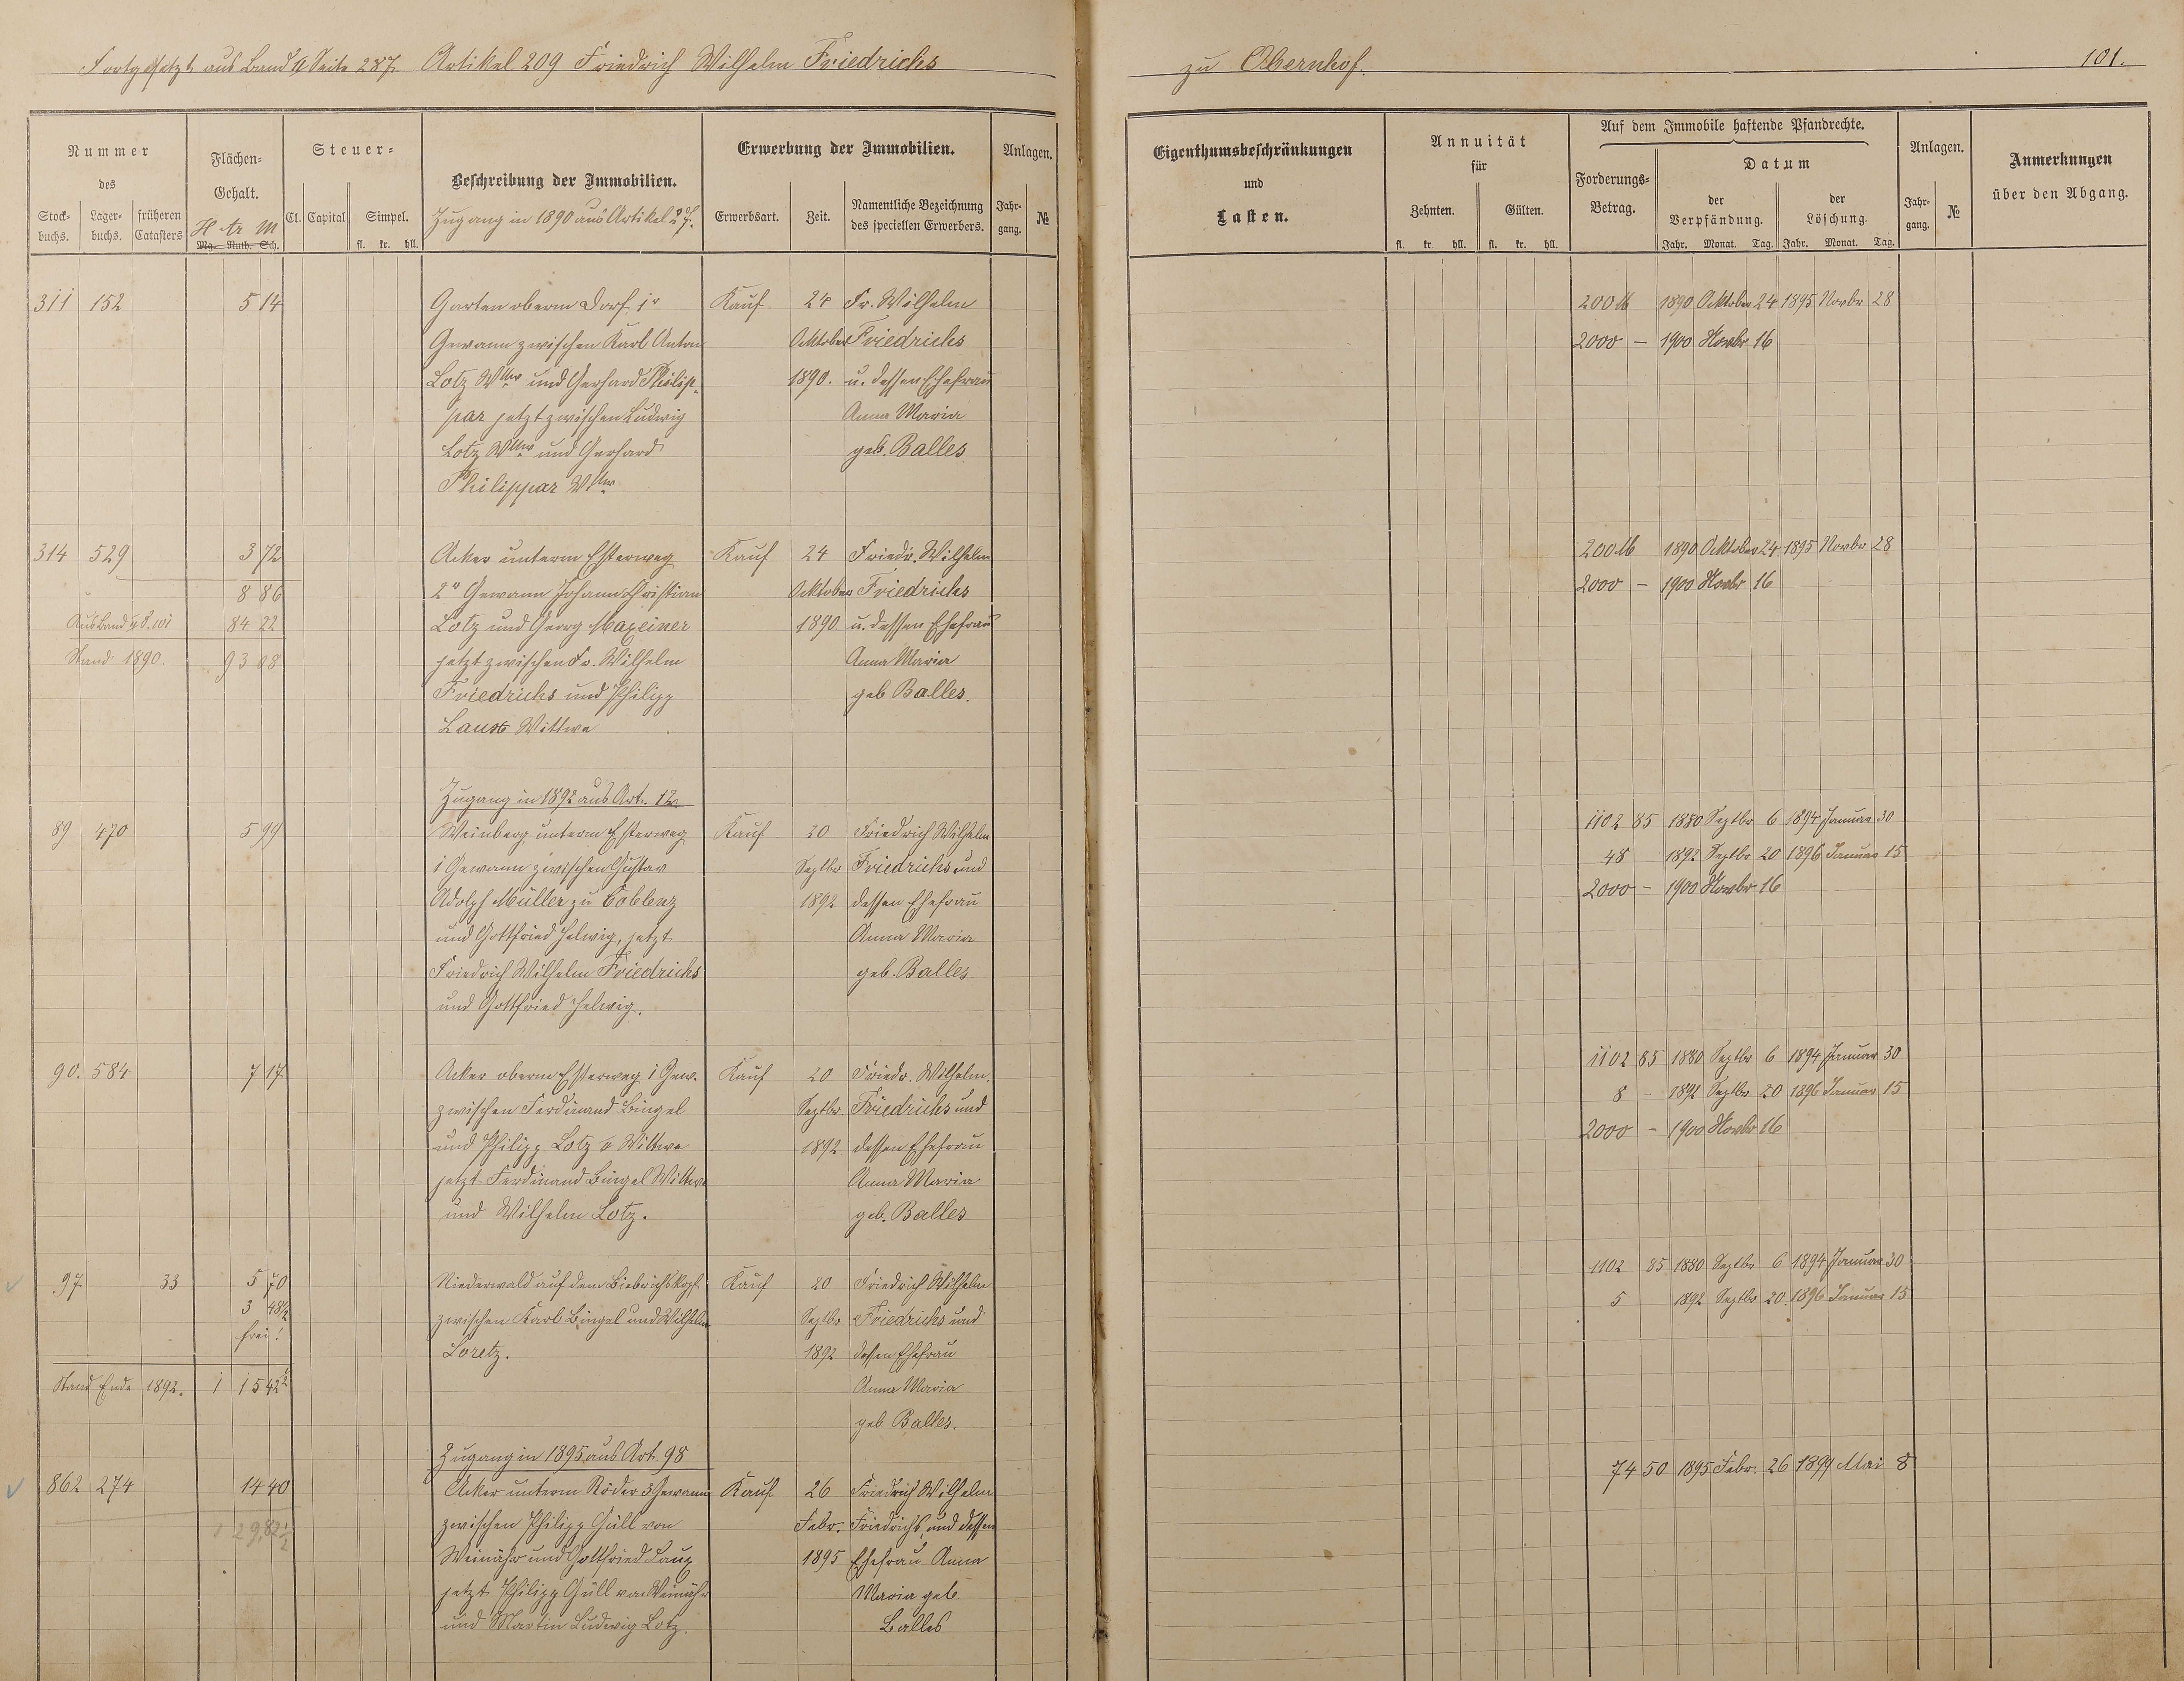 Fortgesetzt aus Band 4 Seite 287. Artikel 209 Friedrich Wilhelm Friedrichs
zu Obernhof. 101.
Nummer
des
Stock-
buchs.
Lager-
buchs.
früheren
Catasters
Flächen-
Gehalt.
H Ar M
Mg. Ruth. Sch.
Steuer-
Cl. Capital Simpel.
fl. kr. hll.
Beschreibung der Immobilien.
Zugang in 1890 aus Artikel
Erwerbung der Immobilien.
Erwerbsart. Zeit. Namentliche Bezeichnung
des speciellen Erwerbers.
Anlagen.
Jahr-
gang. №
Eigenthumsbeschränkungen
und
Lasten.
Annuität
für
Zehnten. Gülten.
fl. kr. hll. fl. kr. hll.
Auf dem Immobile haftende Pfandrechte.
Forderungs-
Betrag.
Datum
der
Verpfändung.
der
Löschung.
Jahr. Monat. Tag. Jahr. Monat. Tag.
Anlagen.
Jahr-
gang. №
Anmerkungen
über den Abgang.
311 152 5 14 Garten oberm Dorf 1r Kauf 24 Fr. Wilhelm 200 M 1890 Oktober 24 1895 Novbr 28
Gewann zwischen Karl Anton Oktober Friedrichs 2000 — 1900 Novbr 16
Lotz Wttw und Gerhard Philip- 1890. u. dessen Ehefrau
par jetzt zwischen Ludwig Anna Maria
Lotz Wttw und Gerhard geb. Balles
Philippar Wttw
314 529 3 72 Acker unterm Esterweg Kauf 24 Friedr. Wilhelm 200 M 1890 Oktober 24 1895 Novbr 28
8 86 2r Gewann Johann Christian Oktober Friedrichs 2000 — 1900 Novbr 16
Aus Band 4 84 22 Lotz und Georg Maxeiner 1890. u. dessen Ehefrau
Stand 1890. 93 08 jetzt zwischen Fr. Wilhelm Anna Maria
Friedrichs und Philipp geb Balles.
Wittwe
Zugang in 1892 aus Art. 12
89 470 5 99 Weinberg unterm Esterweg Kauf 20 Friedrich Wilhelm 1102 85 1880 Septbr 6 1894 Januar 30
1 Gewann zwischen Gustav Septbr Friedrichs und 48 1892 Septbr 20 1896 Januar 15
Adolph Müller zu Coblenz 1892 dessen Ehefrau 2000 — 1900 Novbr 16
und Gottfried Helwig, jetzt Anna Maria
Friedrich Wilhelm Friedrichs geb. Balles
und Gottfried Helwig.
90. 584 7 17 Acker oberm Esterweg 1 Gew. Kauf 20 Friedr. Wilhelm 1102 85 1880 Septbr 6 1894 Januar 30
zwischen Ferdinand Bingel Septbr. Friedrichs und 8 — 1892 Septbr 20 1896 Januar 15
und Philipp Lotz Wittwe 1892 dessen Ehefrau 2000 — 1900 Novbr 16
jetzt Ferdinand Bingel Wittwe Anna Maria
und Wilhelm Lotz. geb. Balles
97 33 5 70 Niederwald auf dem Biebrichskopf Kauf 20 Friedrich Wilhelm 1102 85 1880 Septbr 6 1894 Januar 30
3 48½ zwischen Karl Bingel und Wilhelm Septbr Friedrichs und 5 1892 Septbr 20 1896 Januar 15
frei! Loretz. 1892 dessen Ehefrau
Stand Ende 1892. 1 15 42½ Anna Maria
geb Balles.
Zugang in 1895 aus Art. 98
862 274 14 40 Acker unterm Röder 3 Gewann Kauf 26 Friedrich Wilhelm 74 50 1895 Febr. 26 1899 Mai 8
1 29,82½ zwischen Philipp Güll von Febr. Friedrichs und dessen
Weinähr und Gottfried Laux 1895 Ehefrau Anna
jetzt Philipp Güll von Weinähr Maria geb.
und Martin Ludwig Lotz. Balles